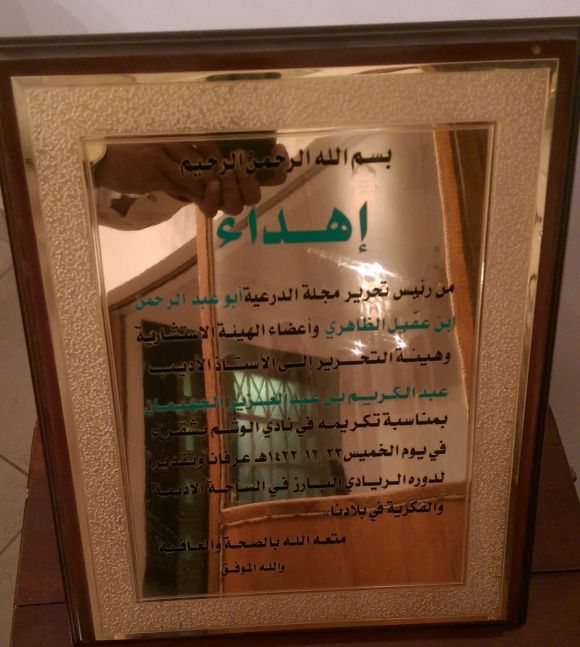 بسم الله الرحمن الرحيم
إهداء
من رئيس تحرير مجلة الدرعية أبو عبد الرحمن
ابن عقيل الظاهري وأعضاء الهيئة الاستشارية
وهيئة التحرير إلى الأستاذ الأديب
عبد الكريم بن عبد العزيز الجهيمان
بمناسبة تكريمه في نادي الوشم بشقراء
في يوم الخميس ٢٣ ١٢ ١٤٢٢هـ عرفانا وتقديرا
لدوره الريادي البارز في الساحة الأدبية
والفكرية في بلادنا..
متعه الله بالصحة والعافية
والله الموفق